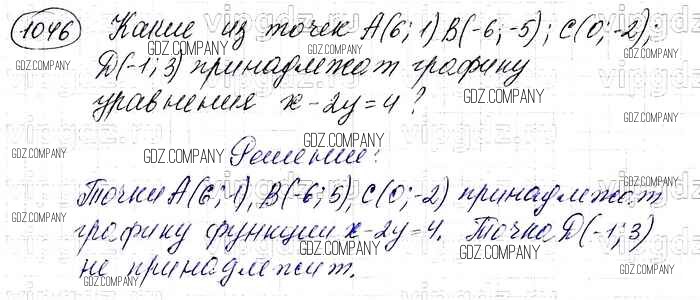 1046 Какие из точек A(6; 1) B(-6; -5); C(0; -2);
D(-1; 3) принадлежат графику
уравнения x - 2y = 4 ?
Решение:
Точки A(6; 1), B(-6; 5), C(0; -2) принадлежат
графику функции x - 2y = 4. Точка D(-1; 3)
не принадлежит.
GDZ.COMPANY
GDZ.COMPANY
GDZ.COMPANY
GDZ.COMPANY
GDZ.COMPANY
GDZ.COMPANY
GDZ.COMPANY
GDZ.COMPANY
GDZ.COMPANY
GDZ.COMPANY
GDZ.COMPANY
GDZ.COMPANY
GDZ.COMPANY
GDZ.COMPANY